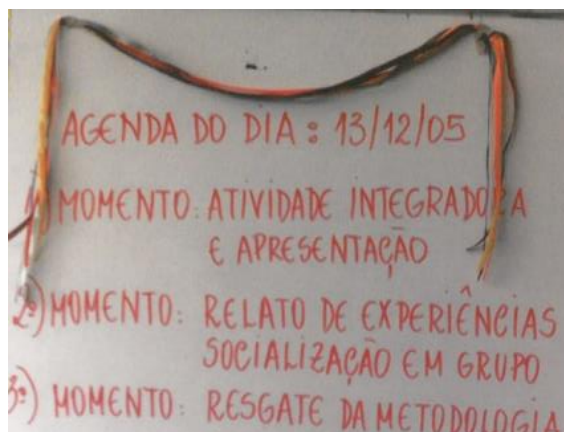 AGENDA DO DIA: 13/12/05
1º) MOMENTO: ATIVIDADE INTEGRADORA
E APRESENTAÇÃO
2º) MOMENTO: RELATO DE EXPERIÊNCIAS
SOCIALIZAÇÃO EM GRUPO
3º) MOMENTO: RESGATE DA METODOLOGIA